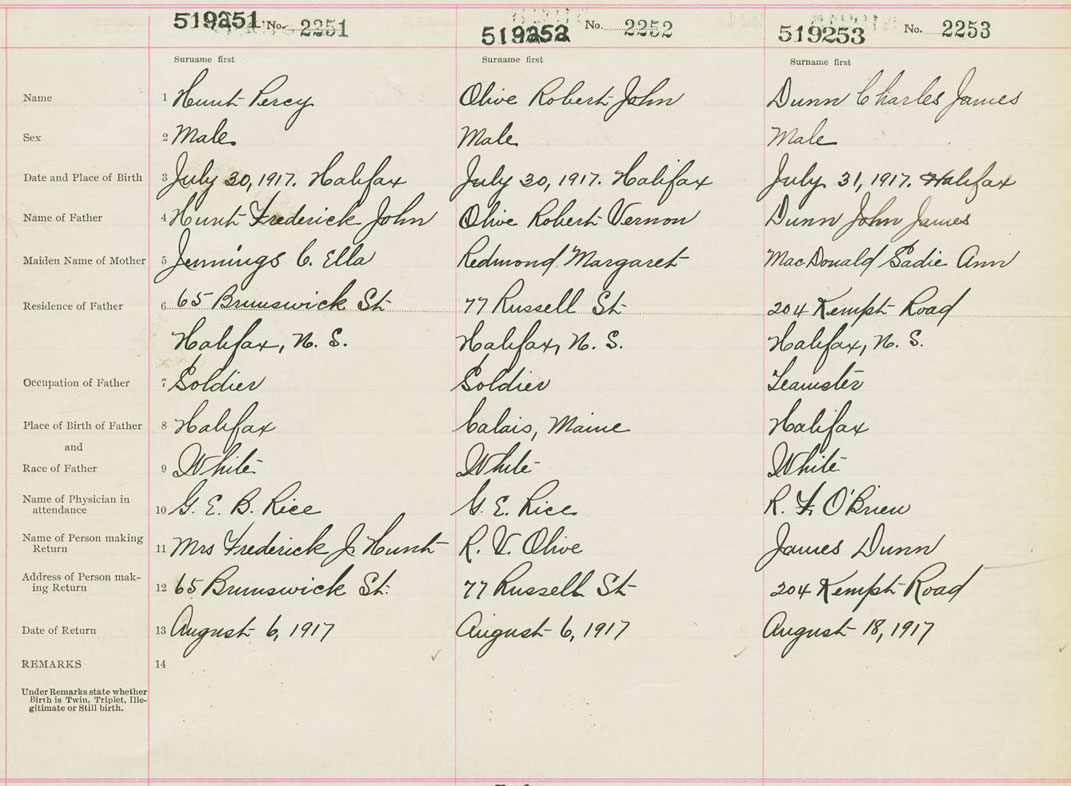 519251 No. 2251 519252 No. 2252 519253 No. 2253
Surname first Surname first Surname first
Name 1 Hunt Percy Olive Robert John Dunn Charles James
Sex 2 Male Male Male
Date and Place of Birth 3 July 30, 1917. Halifax July 30, 1917. Halifax July 31, 1917. Halifax
Name of Father 4 Hunt Frederick John Olive Robert Vernon Dunn John James
Maiden Name of Mother 5 Jennings C. Ella Redmond Margaret MacDonald Sadie Ann
Residence of Father 6 65 Brunswick St. 77 Russell St. 204 Kempt Road
Halifax, N. S. Halifax, N. S. Halifax, N. S.
Occupation of Father 7 Soldier Soldier Teamster
Place of Birth of Father 8 Halifax Calais, Maine Halifax
and
Race of Father 9 White White White
Name of Physician in
attendance 10 G. E. B. Rice G. E. Rice R. F. O'Brien
Name of Person making
Return 11 Mrs Frederick J. Hunt R. V. Olive James Dunn
Address of Person mak-
ing Return 12 65 Brunswick St. 77 Russell St 204 Kempt Road
Date of Return 13 August 6, 1917 August 6, 1917 August 18, 1917
REMARKS 14
Under Remarks state whether
Birth is Twin, Triplet, Ille-
gitimate or Still birth.